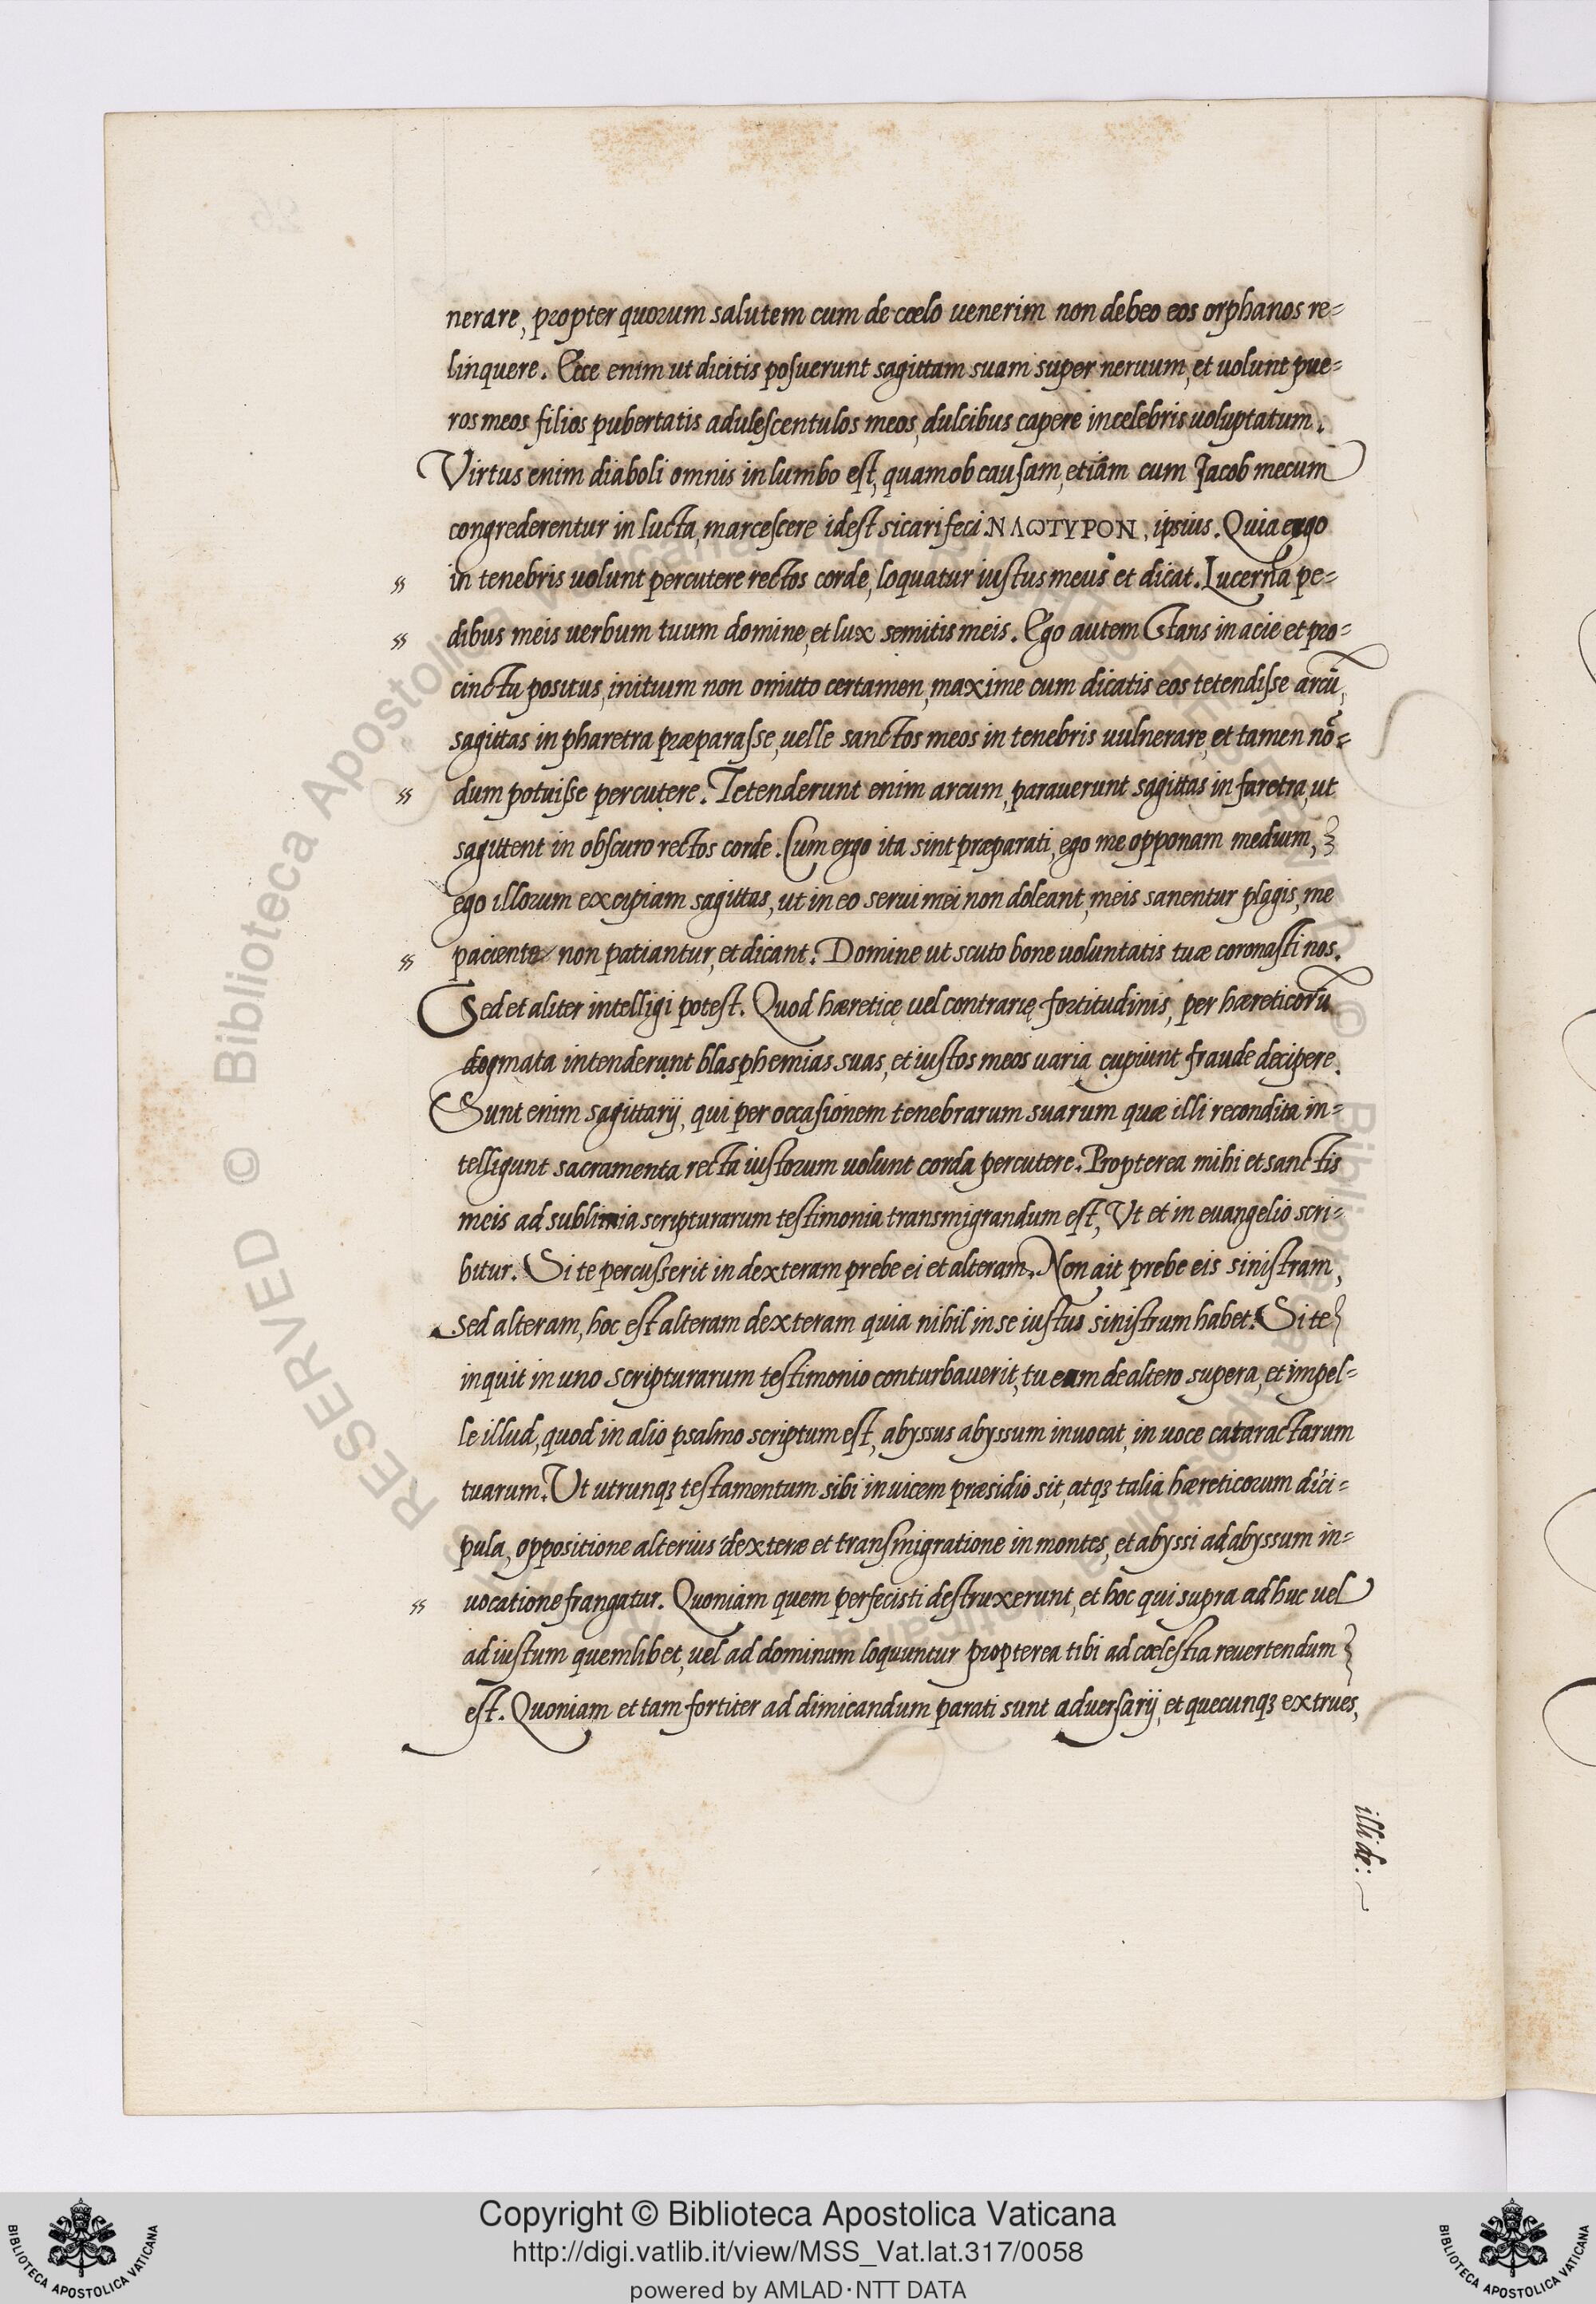 nerare, propter quorum salutem cum de cœlo uenerim non debeo eos orphanos re=
linquere. Ecce enim ut dicitis posuerunt sagittam suam super neruum, et uolunt pue=
ros meos filios pubertatis adulescentulos meos, dulcibus capere incelebris uoluptatum.
Virtus enim diaboli omnis in lumbo est, quamob causam, etiam cum Jacob mecum
congrederentur in lucta, marcescere idest sicari feci ΝΛωΤΥΡΟΝ, ipsius. Quia ergo
" in tenebris uolunt percutere rectos corde, loquatur iustus meus et dicat. Lucerna pe=
" dibus meis uerbum tuum domine, et lux semitis meis. Ego autem Stans in acie et pro=
cinctu positus, initum non omitto certamen, maxime cum dicatis eos tetendisse arcū,
sagittas in pharetra præparasse, uelle sanctos meos in tenebris uulnerare, et tamen nō=
" dum potuisse percutere. Tetenderunt enim arcum, parauerunt sagittas in faretra, ut
sagittent in obscuro rectos corde. Cum ergo ita sint præparati, ego me opponam medium,
ego illorum excipiam sagittas, ut in eo serui mei non doleant, meis sanentur plagis, me
" paciente non patiantur, et dicant. Domine ut scuto bone uoluntatis tuæ coronasti nos.
Sed et aliter intelligi potest. Quod hæreticę uel contrarię fortitudinis, per hæreticorū
dogmata intenderunt blasphemias suas, et iustos meos uaria cupiunt fraude decipere.
Sunt enim sagittarij, qui per occasionem tenebrarum suarum quæ illi recondita in=
telligunt sacramenta recta iustorum uolunt corda percutere. Propterea mihi et sanctis
meis ad sublimia scripturarum testimonia transmigrandum est, Ut et in euangelio scri=
bitur. Si te percusserit in dexteram prebe ei et alteram. Non ait prebe eis sinistram,
sed alteram, hoc est alteram dexteram quia nihil in se iustus sinistrum habet. Si te
inquit in uno scripturarum testimonio conturbauerit, tu eum de altero supera, et impel=
le illud, quod in alio psalmo scriptum est, abyssus abyssum inuocat, in uoce cataractarum
tuarum. Ut utrunqꝫ testamentum sibi inuicem præsidio sit, atqꝫ talia hæreticorum dici=
pula, oppositione alterius dexteræ et transmigratione in montes, et abyssi ad abyssum in=
" uocatione frangatur. Quoniam quem perfecisti destruxerunt, et hoc qui supra ad huc uel
ad iustum quemlibet, uel ad dominum loquuntur propterea tibi ad cœlestia reuertendum
est. Quoniam et tam fortiter ad dimicandum parati sunt aduersarij, et quecunqꝫ extrues,
illi de:
RESERVED © Biblioteca Apostolica Vaticana
Copyright © Biblioteca Apostolica Vaticana
http://digi.vatlib.it/view/MSS_Vat.lat.317/0058
powered by AMLAD·NTT DATA
BIBLIOTECA APOSTOLICA VATICANA
BIBLIOTECA APOSTOLICA VATICANA